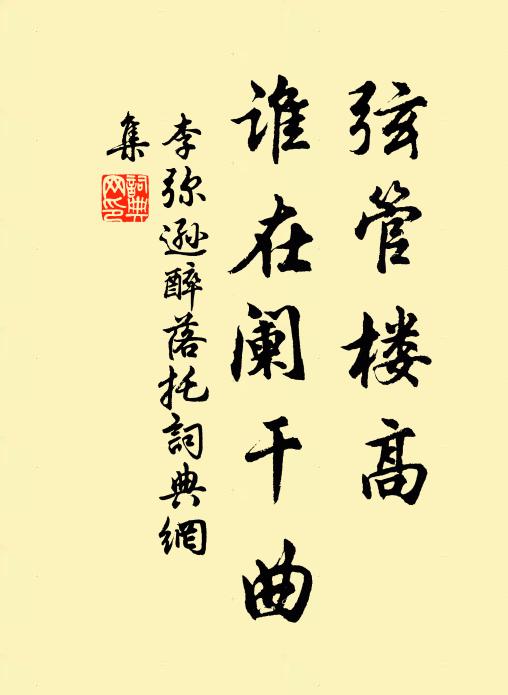 弦管楼高
谁在阑干曲
李弥逊醉落托词典網
集
詞典
网印